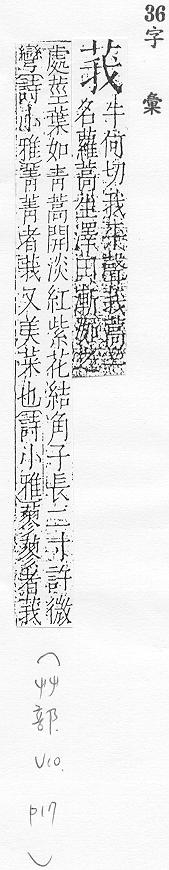 36
字彙
莪
牛何切我平聲莪蒿一
名蘿蒿生澤田漸洳之
處莖葉如青蒿開淡紅紫花結角子長二寸許微
彎詩小雅菁菁者莪又美菜也詩小雅蓼蓼者莪
(艸部. V10. p17)